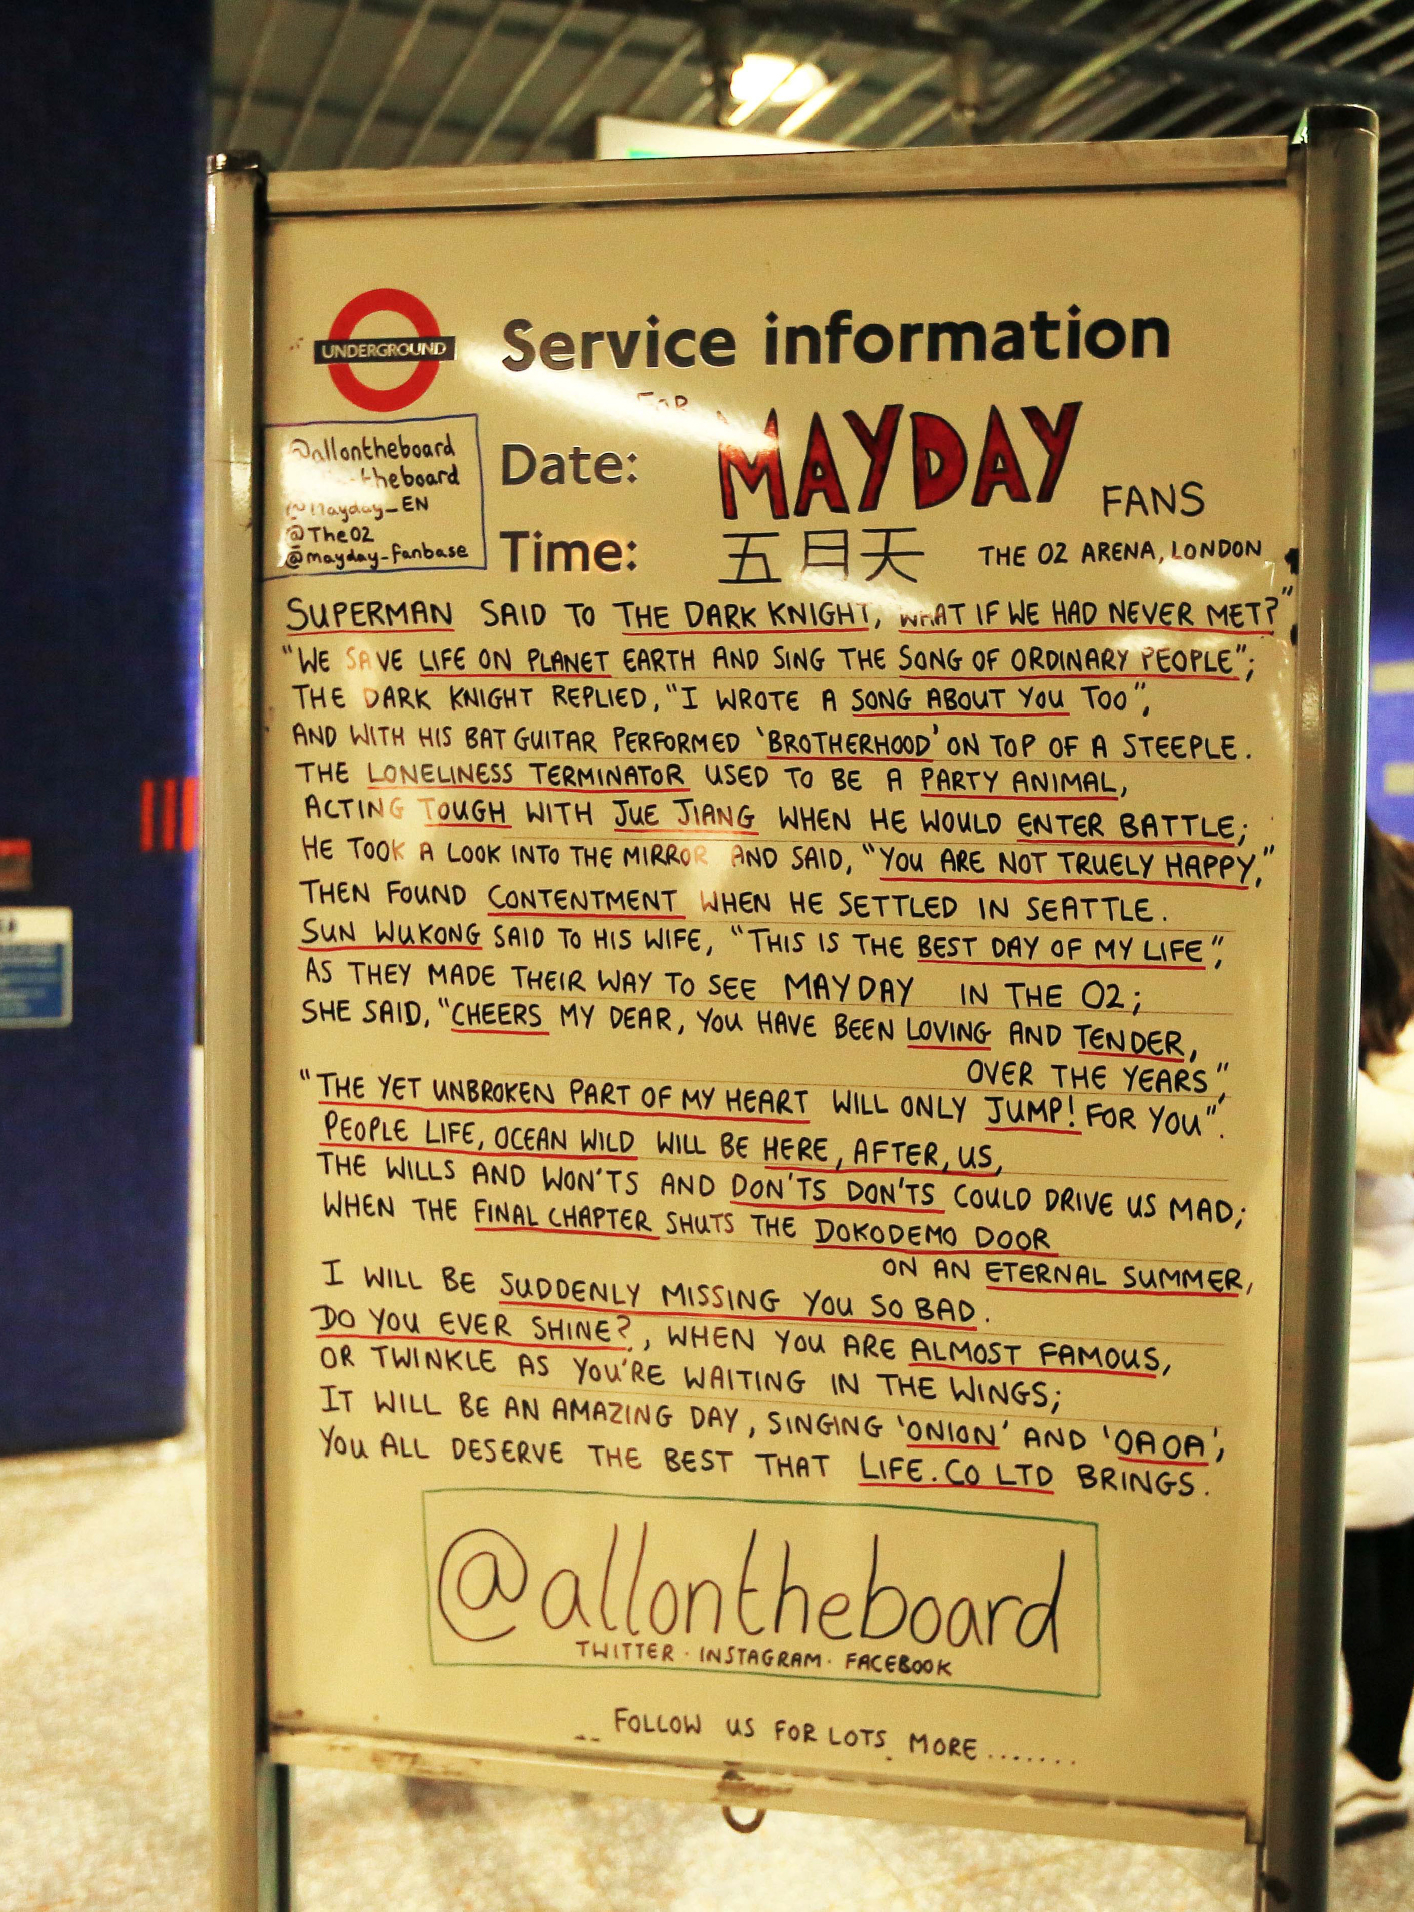 UNDERGROUND
Service information
FOR
@allontheboard
theboard
@Mayday_EN
@TheO2
@mayday_fanbase
Date: MAYDAY FANS
Time: 五月天 THE O2 ARENA, LONDON
SUPERMAN SAID TO THE DARK KNIGHT, WHAT IF WE HAD NEVER MET?"
"WE SAVE LIFE ON PLANET EARTH AND SING THE SONG OF ORDINARY PEOPLE";
THE DARK KNIGHT REPLIED, "I WROTE A SONG ABOUT YOU TOO",
AND WITH HIS BAT GUITAR PERFORMED 'BROTHERHOOD' ON TOP OF A STEEPLE.
THE LONELINESS TERMINATOR USED TO BE A PARTY ANIMAL,
ACTING TOUGH WITH JUE JIANG WHEN HE WOULD ENTER BATTLE;
HE TOOK A LOOK INTO THE MIRROR AND SAID, "YOU ARE NOT TRUELY HAPPY,"
THEN FOUND CONTENTMENT WHEN HE SETTLED IN SEATTLE.
SUN WUKONG SAID TO HIS WIFE, "THIS IS THE BEST DAY OF MY LIFE",
AS THEY MADE THEIR WAY TO SEE MAYDAY IN THE O2;
SHE SAID, "CHEERS MY DEAR, YOU HAVE BEEN LOVING AND TENDER,
OVER THE YEARS",
"THE YET UNBROKEN PART OF MY HEART WILL ONLY JUMP! FOR YOU".
PEOPLE LIFE, OCEAN WILD WILL BE HERE, AFTER, US,
THE WILLS AND WON'TS AND DON'TS DON'TS COULD DRIVE US MAD;
WHEN THE FINAL CHAPTER SHUTS THE DOKODEMO DOOR
ON AN ETERNAL SUMMER,
I WILL BE SUDDENLY MISSING YOU SO BAD.
DO YOU EVER SHINE?, WHEN YOU ARE ALMOST FAMOUS,
OR TWINKLE AS YOU'RE WAITING IN THE WINGS;
IT WILL BE AN AMAZING DAY, SINGING 'ONION' AND 'OAOA',
YOU ALL DESERVE THE BEST THAT LIFE.CO LTD BRINGS.
@allontheboard
TWITTER · INSTAGRAM · FACEBOOK
FOLLOW US FOR LOTS MORE........